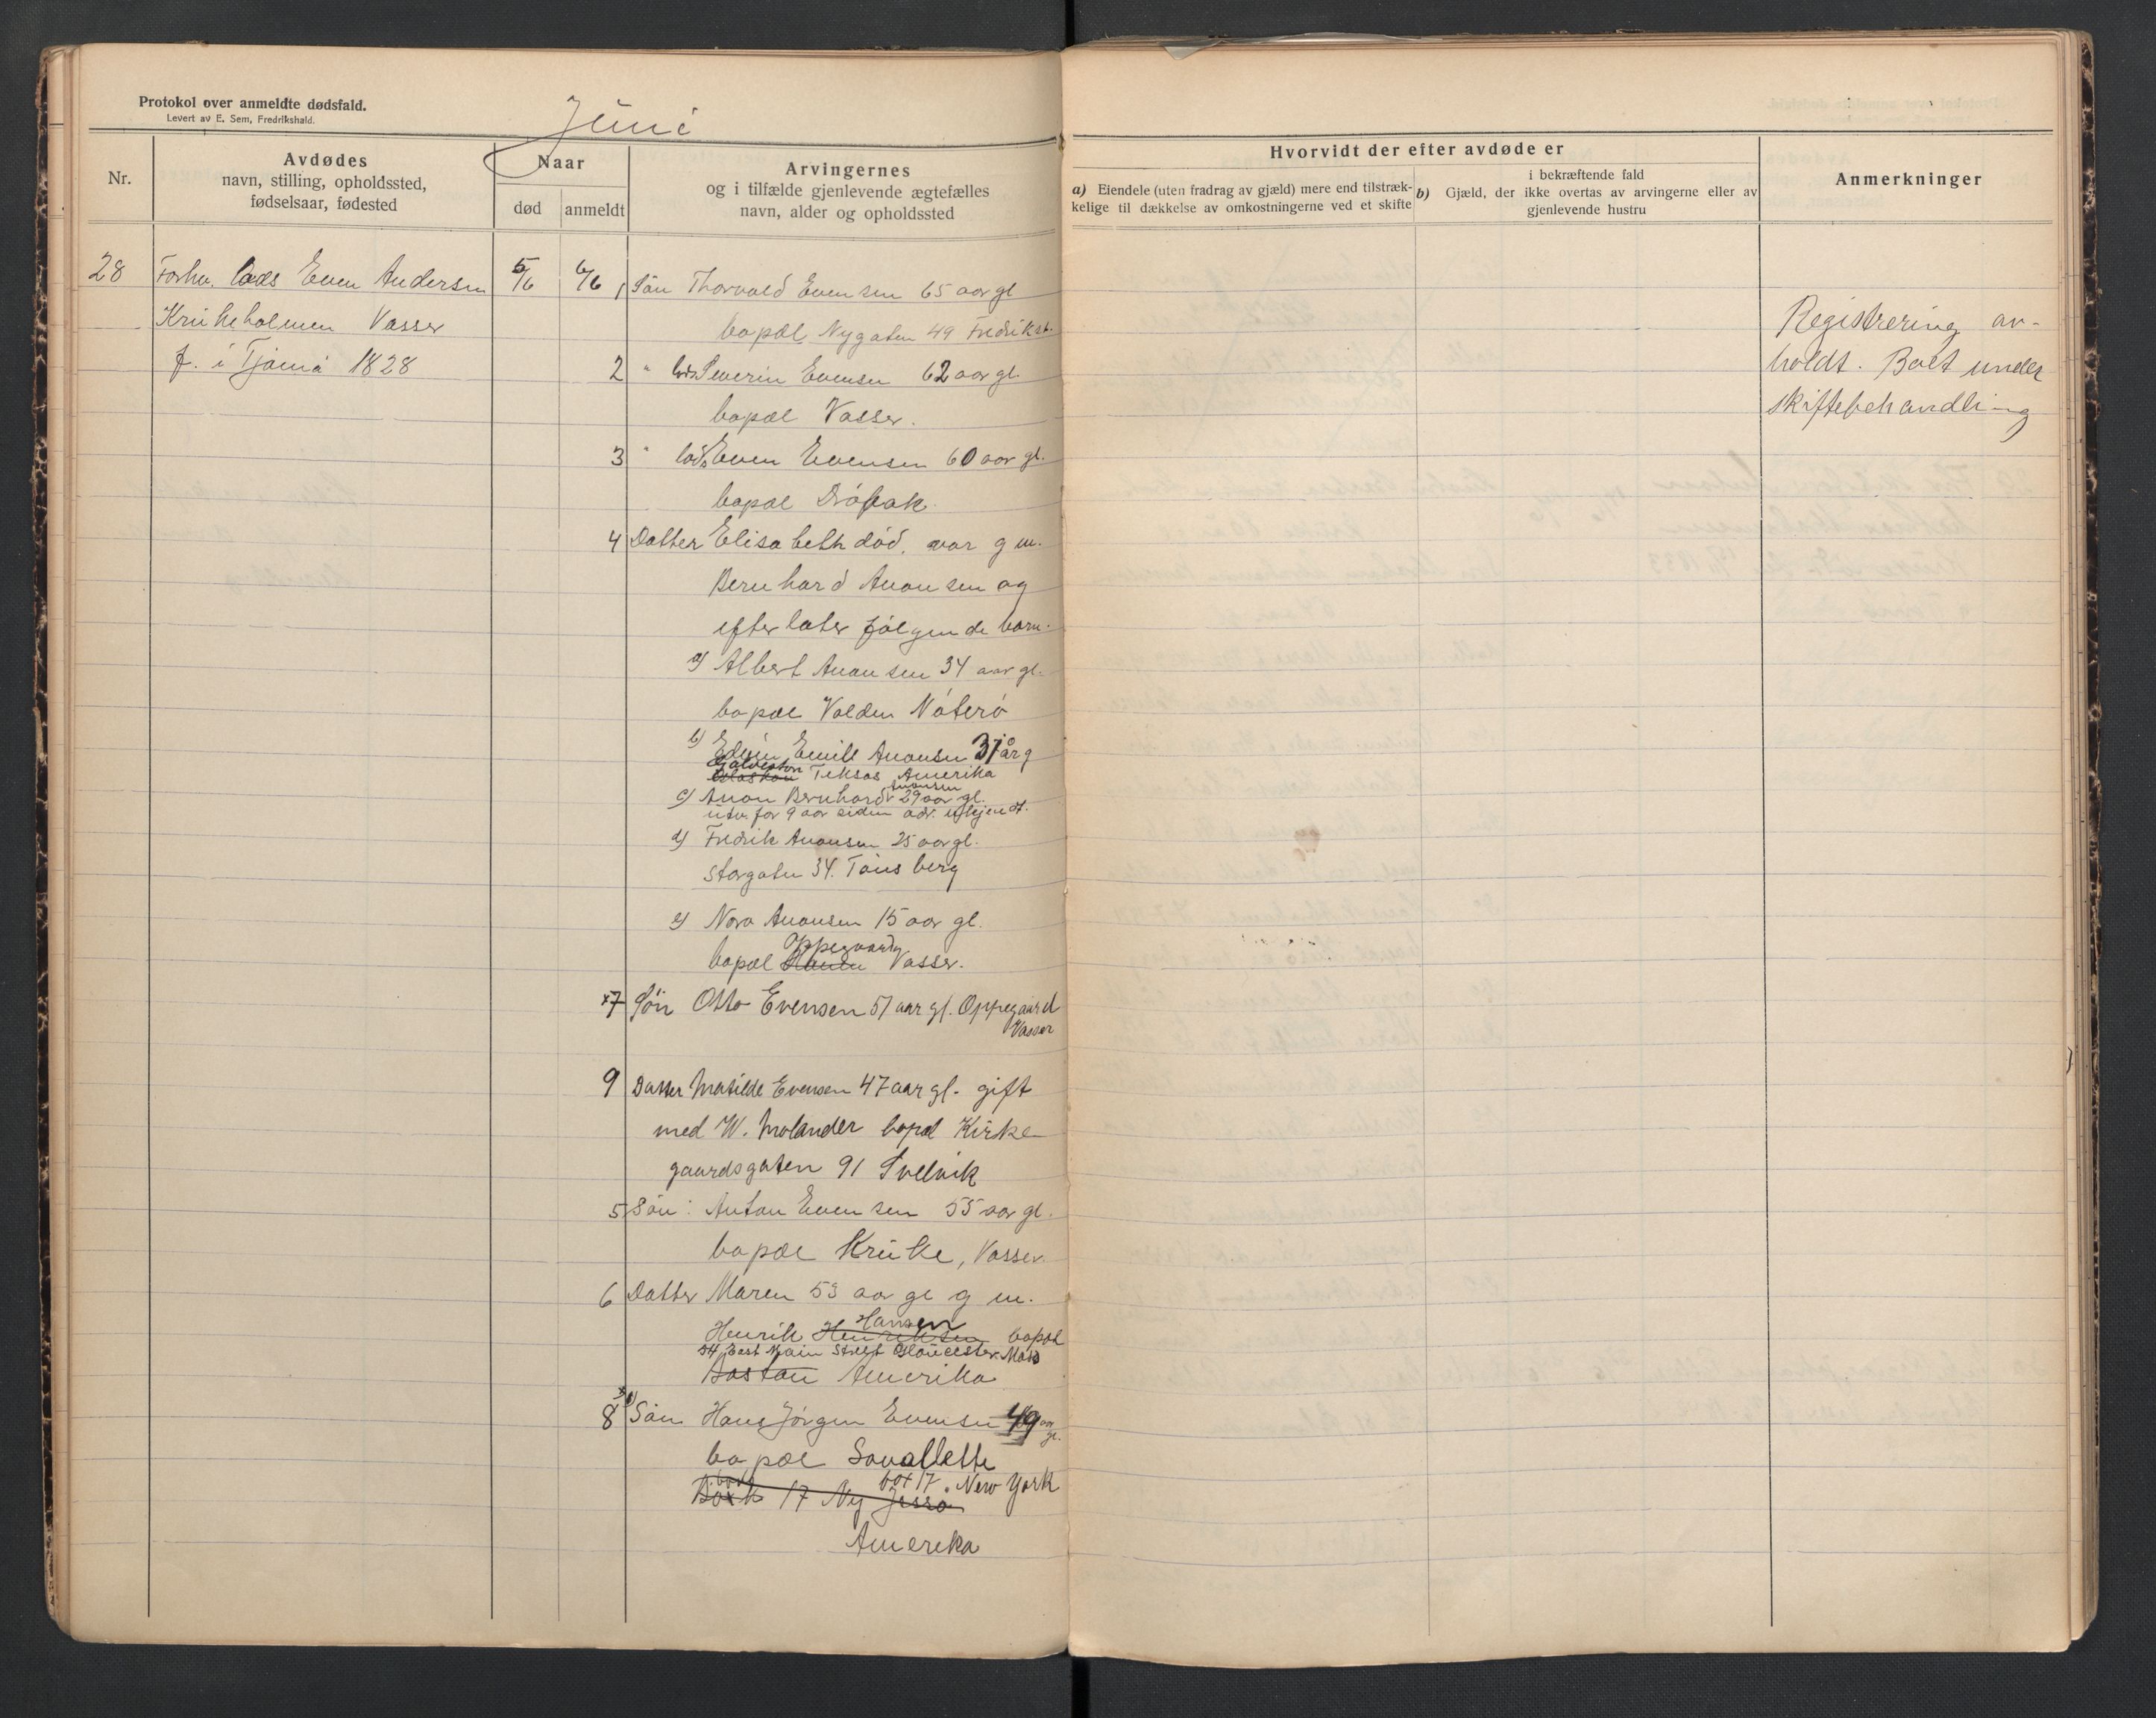 Protokol over anmeldte dødsfald.
Levert av E. Sem, Fredrikshald.
Juni
Nr.
Avdødes
navn, stilling, opholdssted,
fødselsaar, fødested
Naar
død
anmeldt
Arvingernes
og i tilfælde gjenlevende ægtefælles
navn, alder og opholdssted
Hvorvidt der efter avdøde er
a) Eiendele (uten fradrag av gjæld) mere end tilstræk-
kelige til dækkelse av omkostningerne ved et skifte
i bekræftende fald
b) Gjæld, der ikke overtas av arvingerne eller av
gjenlevende hustru
Anmerkninger
28 Forhv. lods Even Andersen 5/6 6/6
Krukeholmen Vasser
f. i Tjømø 1828
1 Søn Thorvald Evensen 65 aar gl
bopæl Nygaten 49 Fredrikst.
2 " lods Severin Evensen 62 aar gl.
bopæl Vasser.
3 " lods Even Evensen 60 aar gl.
bopæl Drøbak
4 Datter Elisabeth død, var g m.
Bernhard Anonsen og
efterlater følgende barn.
a) Albert Anonsen 34 aar gl.
bopæl Valden Nøterø
b) Edvin Emill Anonsen 31 år g
Galveston
Teksas Amerika
c) Anon Bernhard Anonsen 29 aar gl.
utv. for 9 aar siden adr. ubekjendt.
d) Fredrik Anonsen 25 aar gl.
Storgaten 34. Tønsberg
e) Nora Anonsen 15 aar gl.
Oppegaard
bopæl Haugen Vasser.
x7 Søn Otto Evensen 51 aar gl. Oppegaard
Vasser
9 Datter Matilde Evensen 47 aar gl. gift
med W. Molander bopæl Kirke
gaardsgaten 91 Svelvik
5 Søn: Anton Evensen 55 aar gl.
bopæl Kruke, Vasser.
6 Datter Maren 53 aar gl g m.
Hansen
Henrik Henriksen bopæl
54 East Main Street Gloucester Mass
Boston Amerika
8 Søn Hans Jørgen Evensen 49 aar
gl.
bopæl Lavallette
box 17. New York
17 Ny Jersø
Amerika
Registrering av-
holdt. Boet under
skiftebehandling